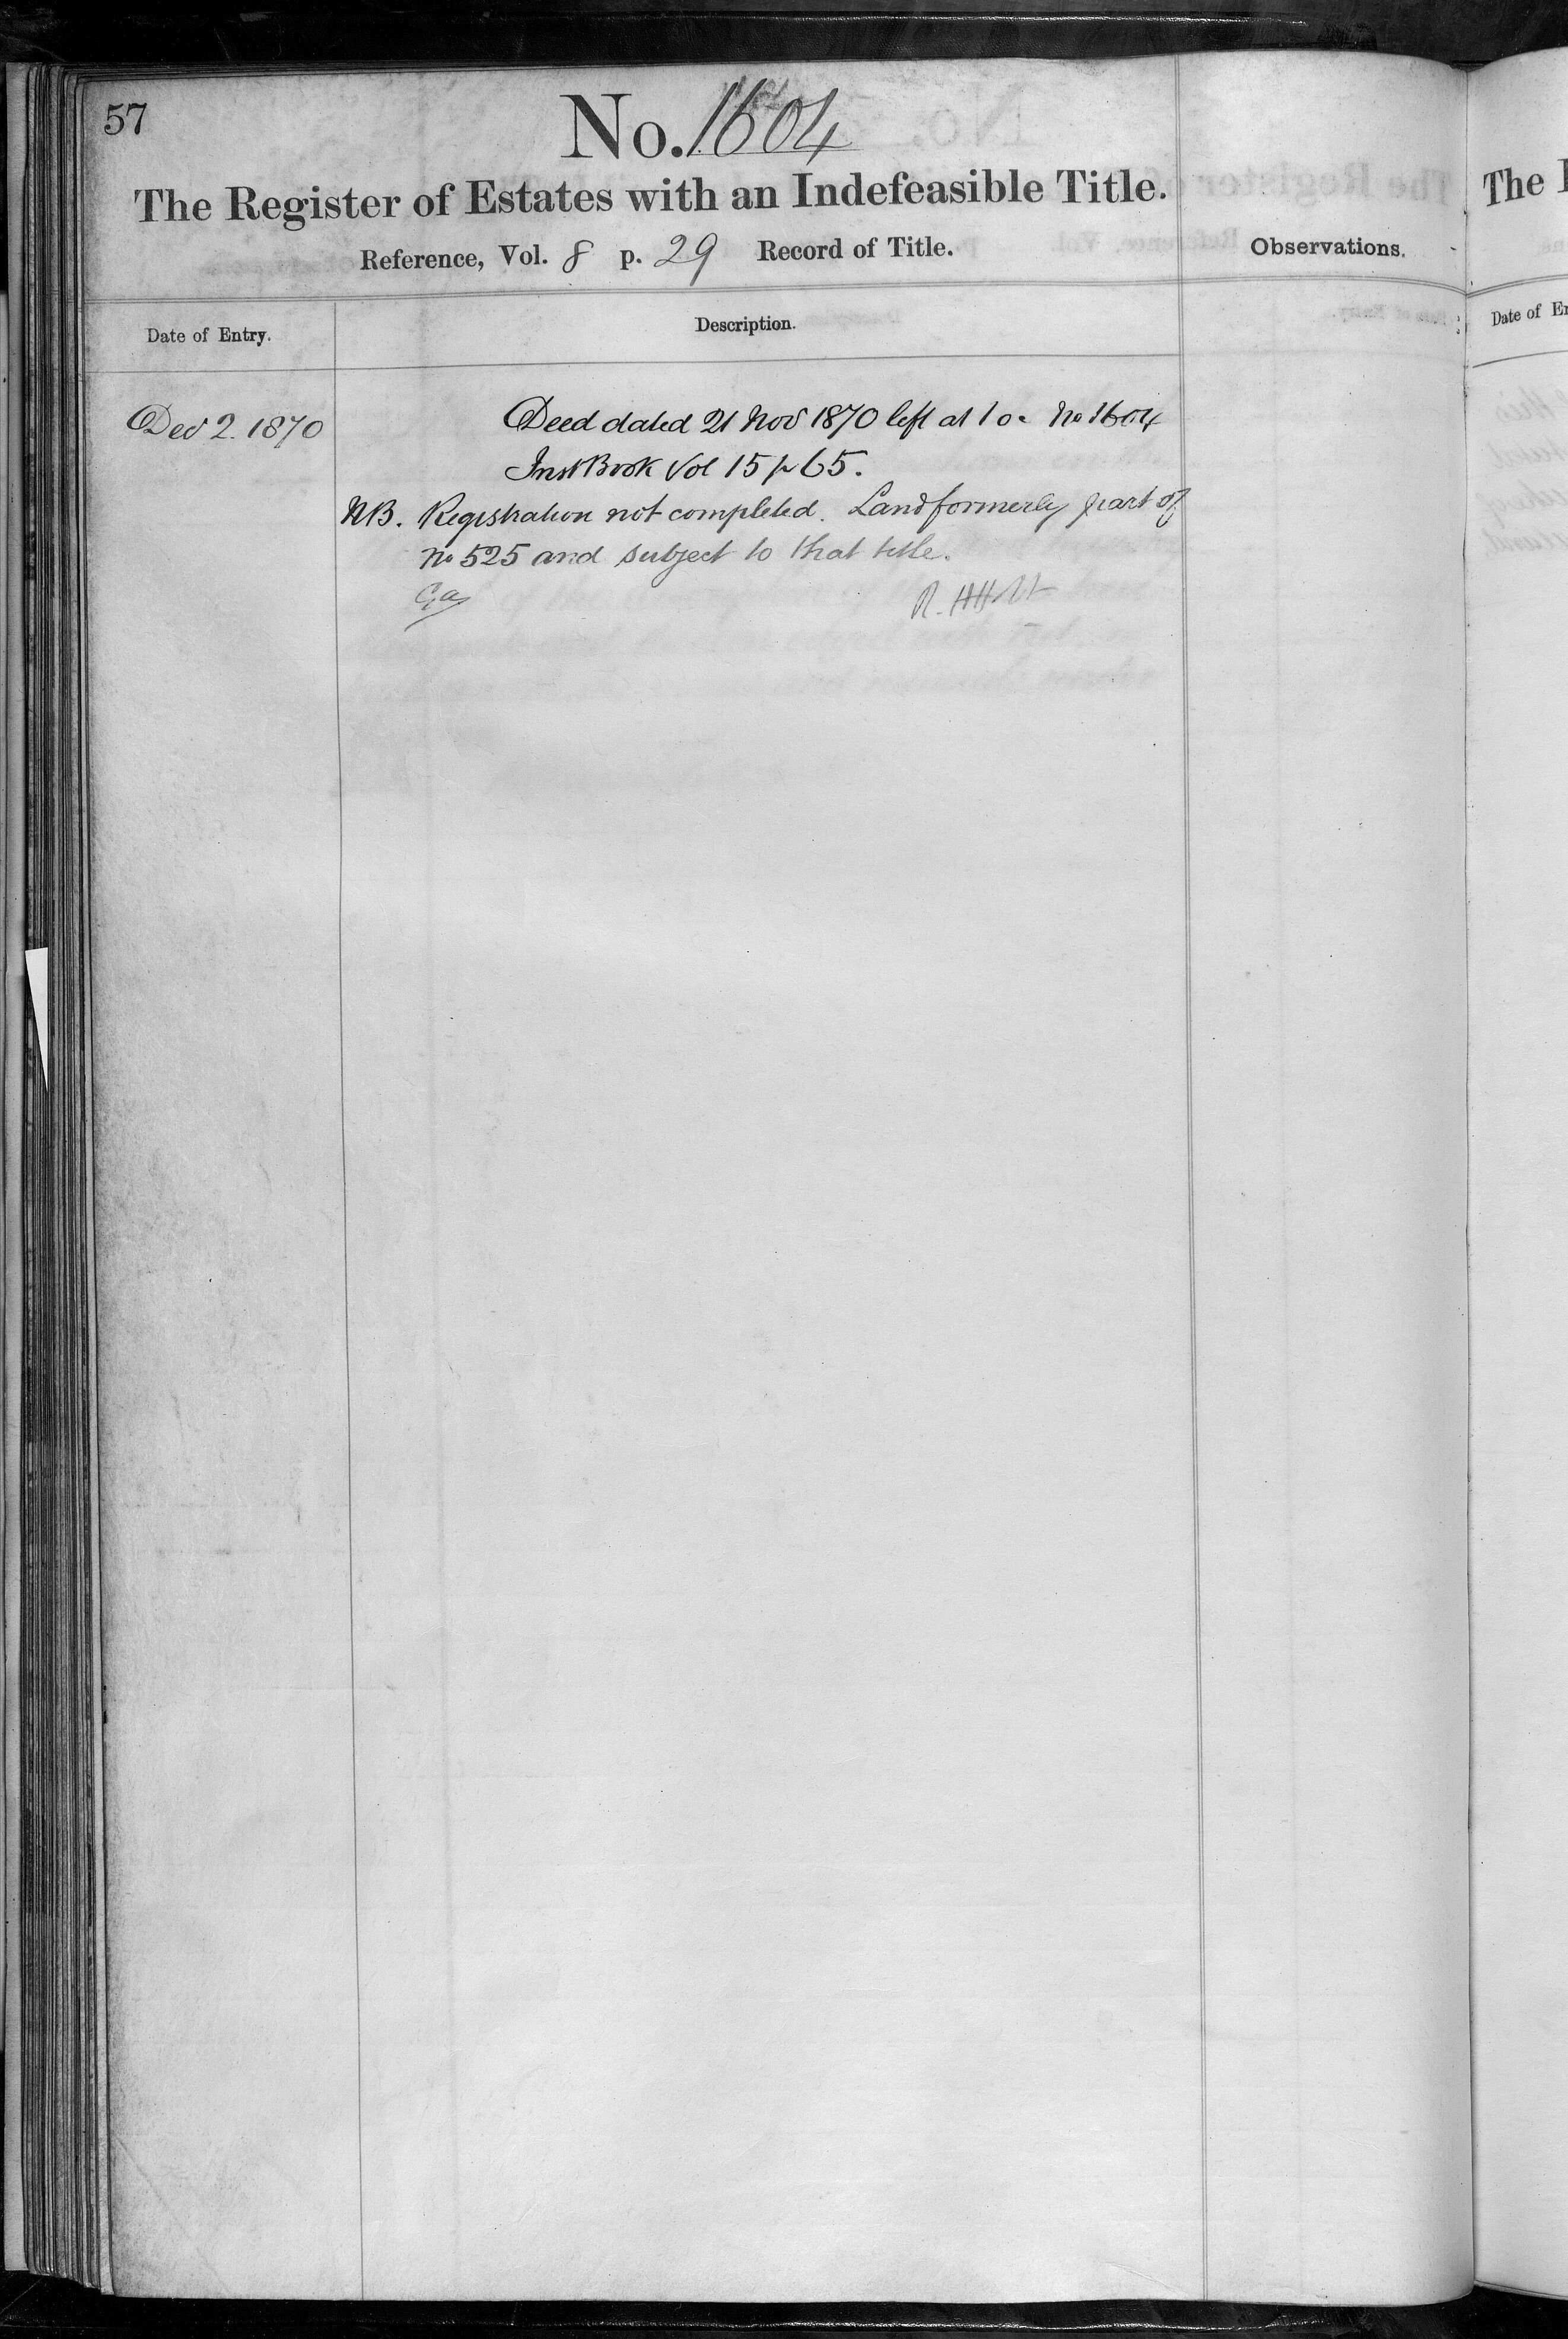 57
No. 1604
The Register of Estates with an Indefeasible Title.
Reference, Vol. 8 p. 29 Record of Title.
Observations.
Date of Entry.
Description.
Dec 2. 1870
Deed dated 21 Nov 1870 left at 1 o c No 1604
Inst Book Vol 15 p 65.
NB. Registration not completed. Land formerly part of
No 525 and subject to that title.
The
Date of